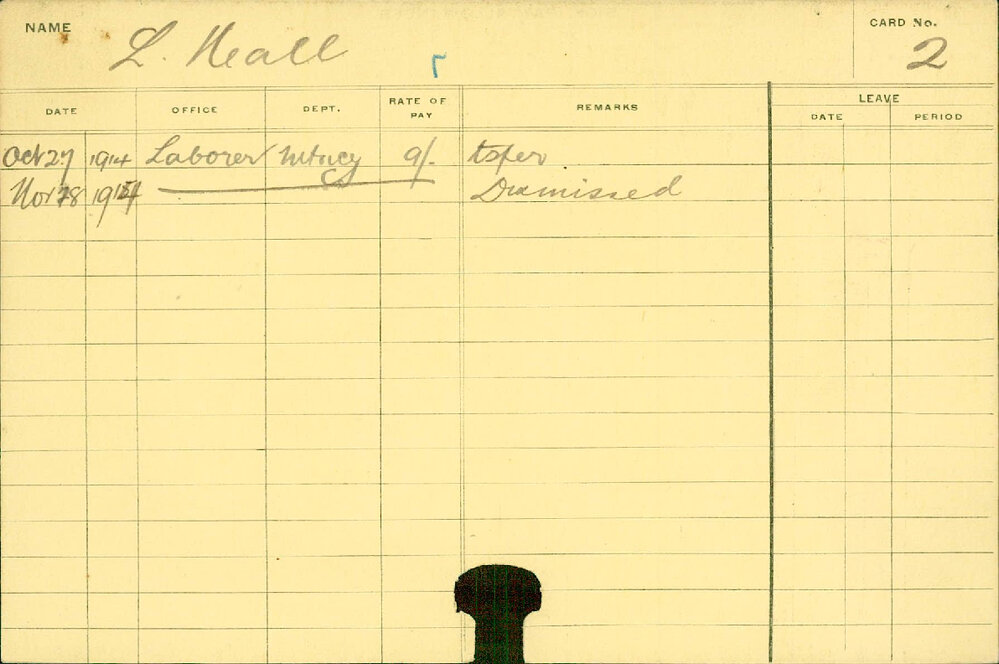 NAME L. Neall CARD No. 2
DATE OFFICE DEPT. RATE OF PAY REMARKS LEAVE DATE PERIOD
Oct 27 1914 Laborer Mtncy 9/- tsfer
Nov 28 1914 Dismissed